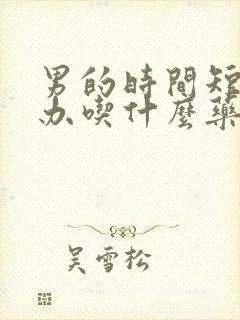 男的時間短
办喫什麼藥
吴雪松